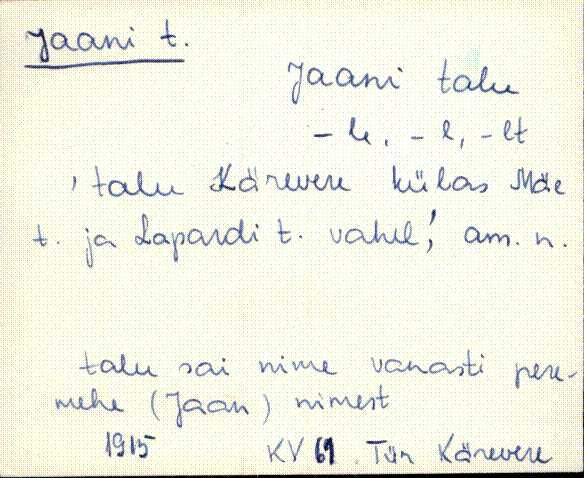 Jaani t.
Jaani talu
-le, -l, -lt
'talu Kärevere külas Mäe
t. ja Lapardi t. vahel', am. n.
talu sai nime vanasti pere-
mehe (Jaan) nimest
1915 KV 61. Tür Kärevere